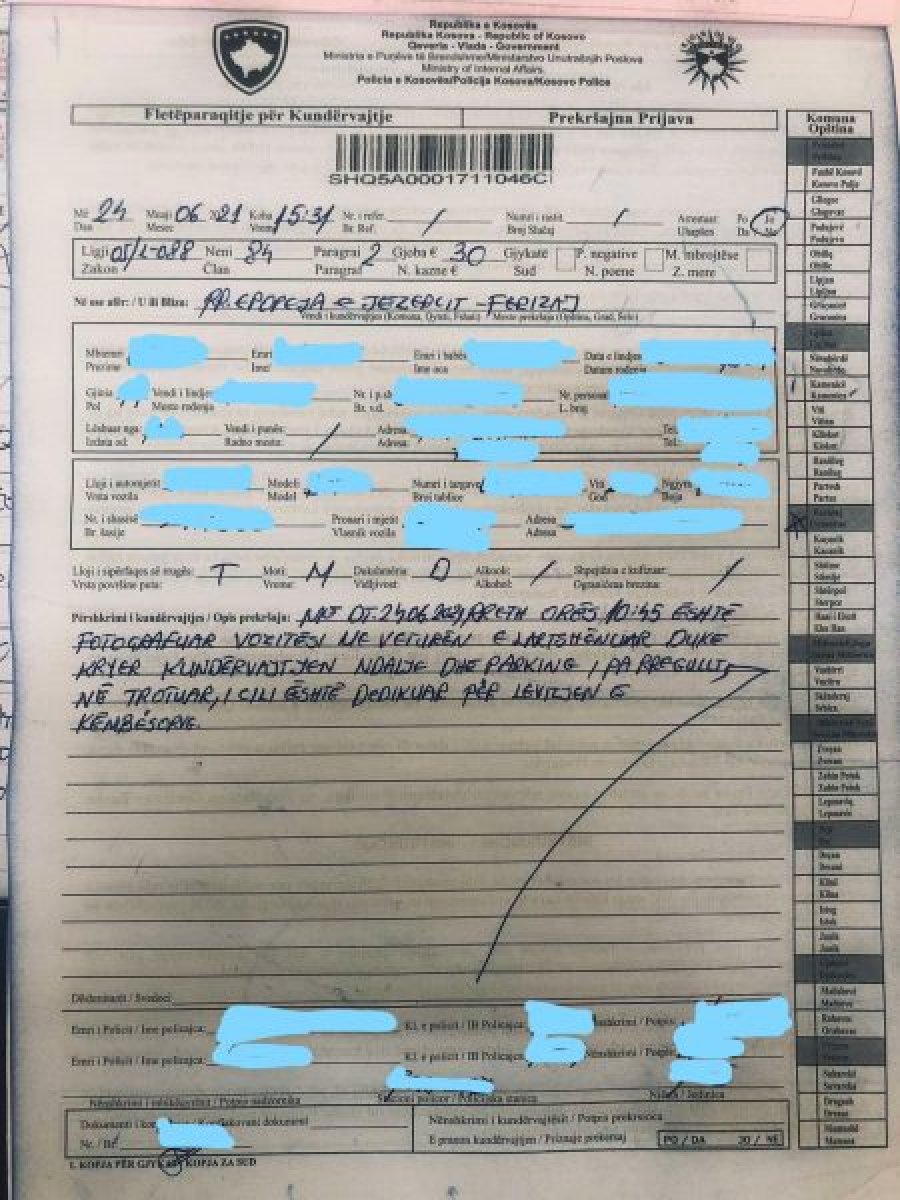 Republika e Kosovës
Republika Kosova - Republic of Kosovo
Qeveria - Vlada - Government
Ministria e Punëve të Brendshme/Ministarstvo Unutrašnjih Poslova
Ministry of Internal Affairs
Policia e Kosovës/Policija Kosova/Kosovo Police
Fletëparaqitje për Kundërvajtje Prekršajna Prijava
SHQ5A0001711046C
Më 24 Muaji 06 21 Koha 15:31 Nr. i refer. / Numri i rastit / Arrestuar Po Jo
Dan Mesec Vreme Br. Ref. Broj Slučaj Uhapšen Da Ne
Ligji 05/L-088 Neni 84 Paragraf 2 Gjoba € 30 Gjykatë P. negative M. mbrojtëse
Zakon Član Paragraf N. kazne € Sud N. poene Z. mere
Në ose afër: / U ili Blizu: RR. EPOPEJA E JEZERCIT - FERIZAJ
Vendi i kundërvajtjes (Komuna, Qyteti, Fshati) Mesto prekršaja (Opština, Grad, Selo)
Mbiemri Emri Emri i babës Data e lindjes
Prezime Ime Ime oca Datum rođenja
Gjinia Vendi i lindjes Nr. personal
Pol Mesto rođenja Br. v.d. L. broj
Lëshuar nga: Vendi i punës: / Adresa Tel:
Izdata od: Radno mesto: Adresa: Tel:
Lloji i automjetit Modeli Numri i targave Viti Ngjyra
Vrsta vozila Model Broj tablice God Boja
Nr. i shasisë Pronari i mjetit Adresa
Br. šasije Vlasnik vozila Adresa
Lloji i sipërfaqes së rrugës: T Moti: M Dukshmëria: D Alkooli: / Shpejtësia e kufizuar: /
Vrsta površine puta: Vreme: Vidljivost: Alkohol: Ograničena brzina:
Përshkrimi i kundërvajtjes / Opis prekršaja: MË DT. 24.06.2021 RRETH ORËS 10:45 ËSHTË
FOTOGRAFUAR VOZITËSI ME VETURËN E LARTSHËNUAR DUKE
KRYER KUNDËRVAJTJEN NDALJE DHE PARKING I PA RREGULLT
NË TROTUAR, I CILI ËSHTË DEDIKUAR PËR LËVIZJEN E
KËMBËSORVE.
Dëshmitarët / Svedoci
Emri i Policit / Ime policajca: / ID Policajca: Nënshkrimi / Potpis
Emri i Policit / Ime policajca: / ID Policajca: Nënshkrimi / Potpis
Nënshkrimi i mbikëqyrësit / Potpis nadzornika Stacioni policor / Policijska stanica Njësia / Jedinica
Nënshkrimi i kundërvajtësit / Potpis prekršioca
Nr. / Br
E pranon kundërvajtjen / Priznaje prekršaj PO / DA JO / NE
1. KOPJA PËR GJYKATË / KOPJA ZA SUD
Komuna
Opština
Fushë Kosovë
Kosovo Polje
Gllogoc
Glogovac
Podujevë
Podujevo
Obiliq
Obilić
Lipjan
Lipljan
Graçanicë
Gracanica
Novobërdë
Kamenicë
Kamenica
Viti
Vitina
Kllokot
Klokot
Ranillug
Ranilug
Partesh
Parteš
Kaçanik
Kacanik
Shtime
Stimlje
Shtërpcë
Sterpce
Hani i Elezit
Vushtrri
Vucitrn
Skënderaj
Srbica
Zveçan
Zvecan
Zubin Potok
Zubin Potok
Leposaviq
Leposavic
Deçan
Decani
Klinë
Klina
Istog
Istok
Junik
Junik
Malishevë
Malisevo
Rahovec
Orahovac
Suharekë
Suvareka
Dragash
Dragas
Mamushë
Mamusa